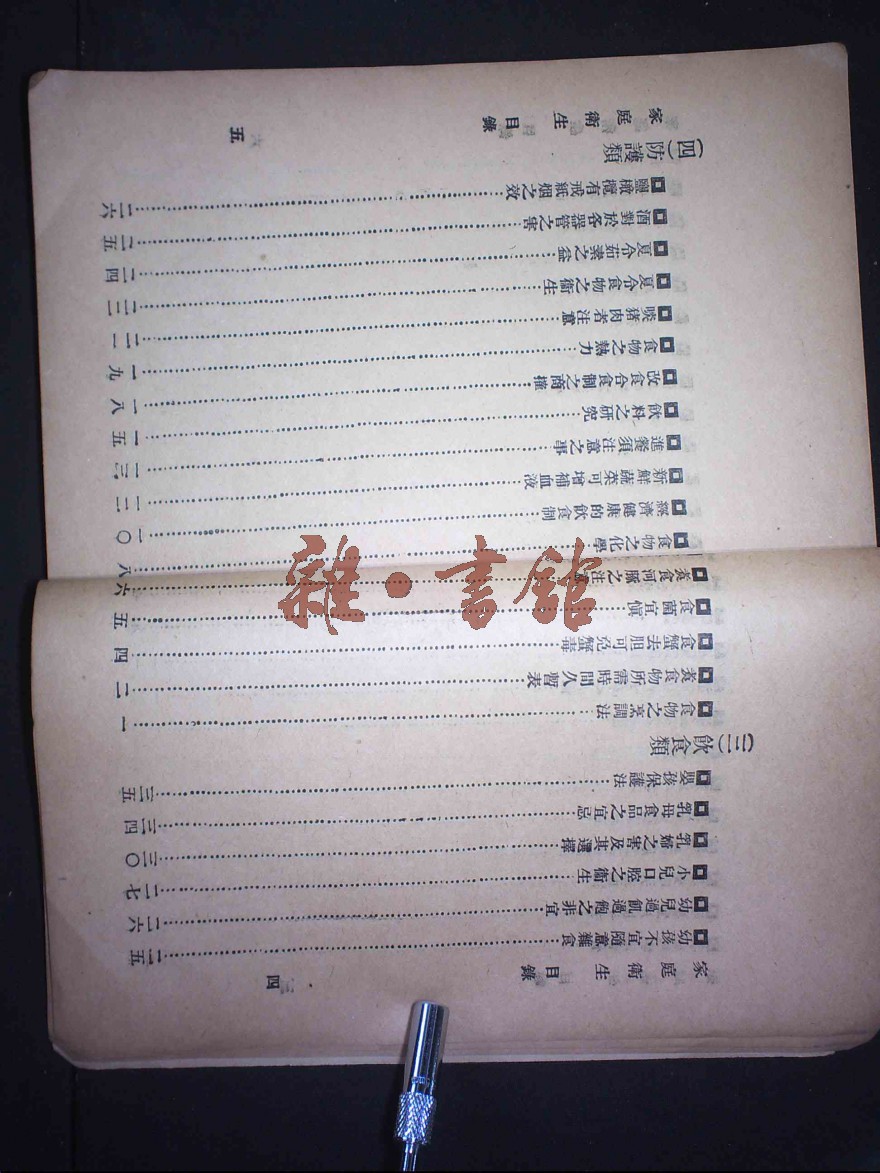 家庭衛生目錄 四
幼孩不宜隨意雜食……二五
幼兒過飢過飽之非宜……二六
小兒口腔之衞生……二七
乳媼之害及其選擇……三〇
乳母食品之宜忌……三四
嬰孩保護法……三五
(三)飲食類
食物之烹調法……一
煮食物所需時間久習表……二
食蟹去胆可免蟹毒……四
食菌宜慎……五
煮食河豚之注意……六
食物之化學……八
經濟健康的飲食制……一〇
新鮮蔬菜可增補血液……一二
進餐須注意之事……一三
飲料之研究……一五
改食合食制之商榷……一八
食物之熱力……一九
啖猪肉者注意……二一
夏令食物之衞生……二三
夏令茹素之益……二四
酒對於各器管之害……二五
鹽橄欖有戒紙烟之效……二六
(四)防護類
家庭衛生目錄 五
雜·書館